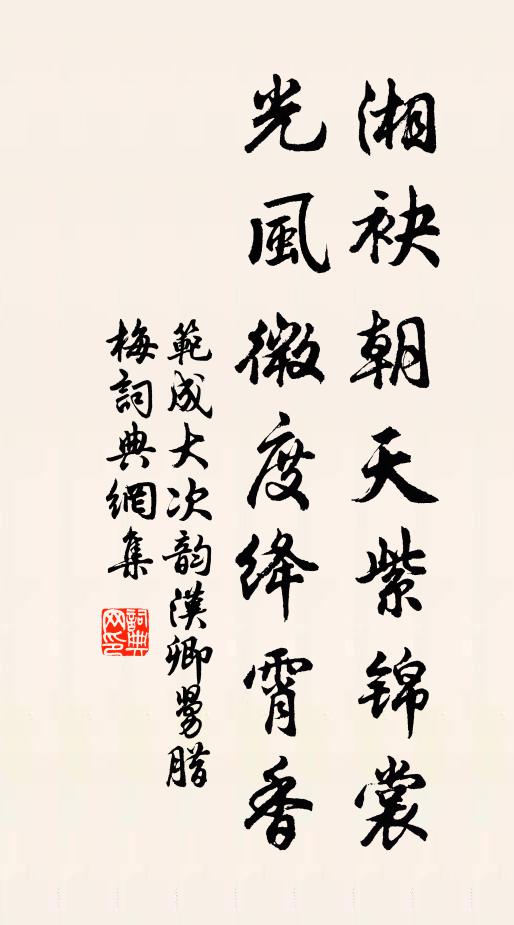 湘袂朝天紫錦裳
光風微度絳霄香
範成大次韵漢卿舅腊
梅詞典網集
詞典网印